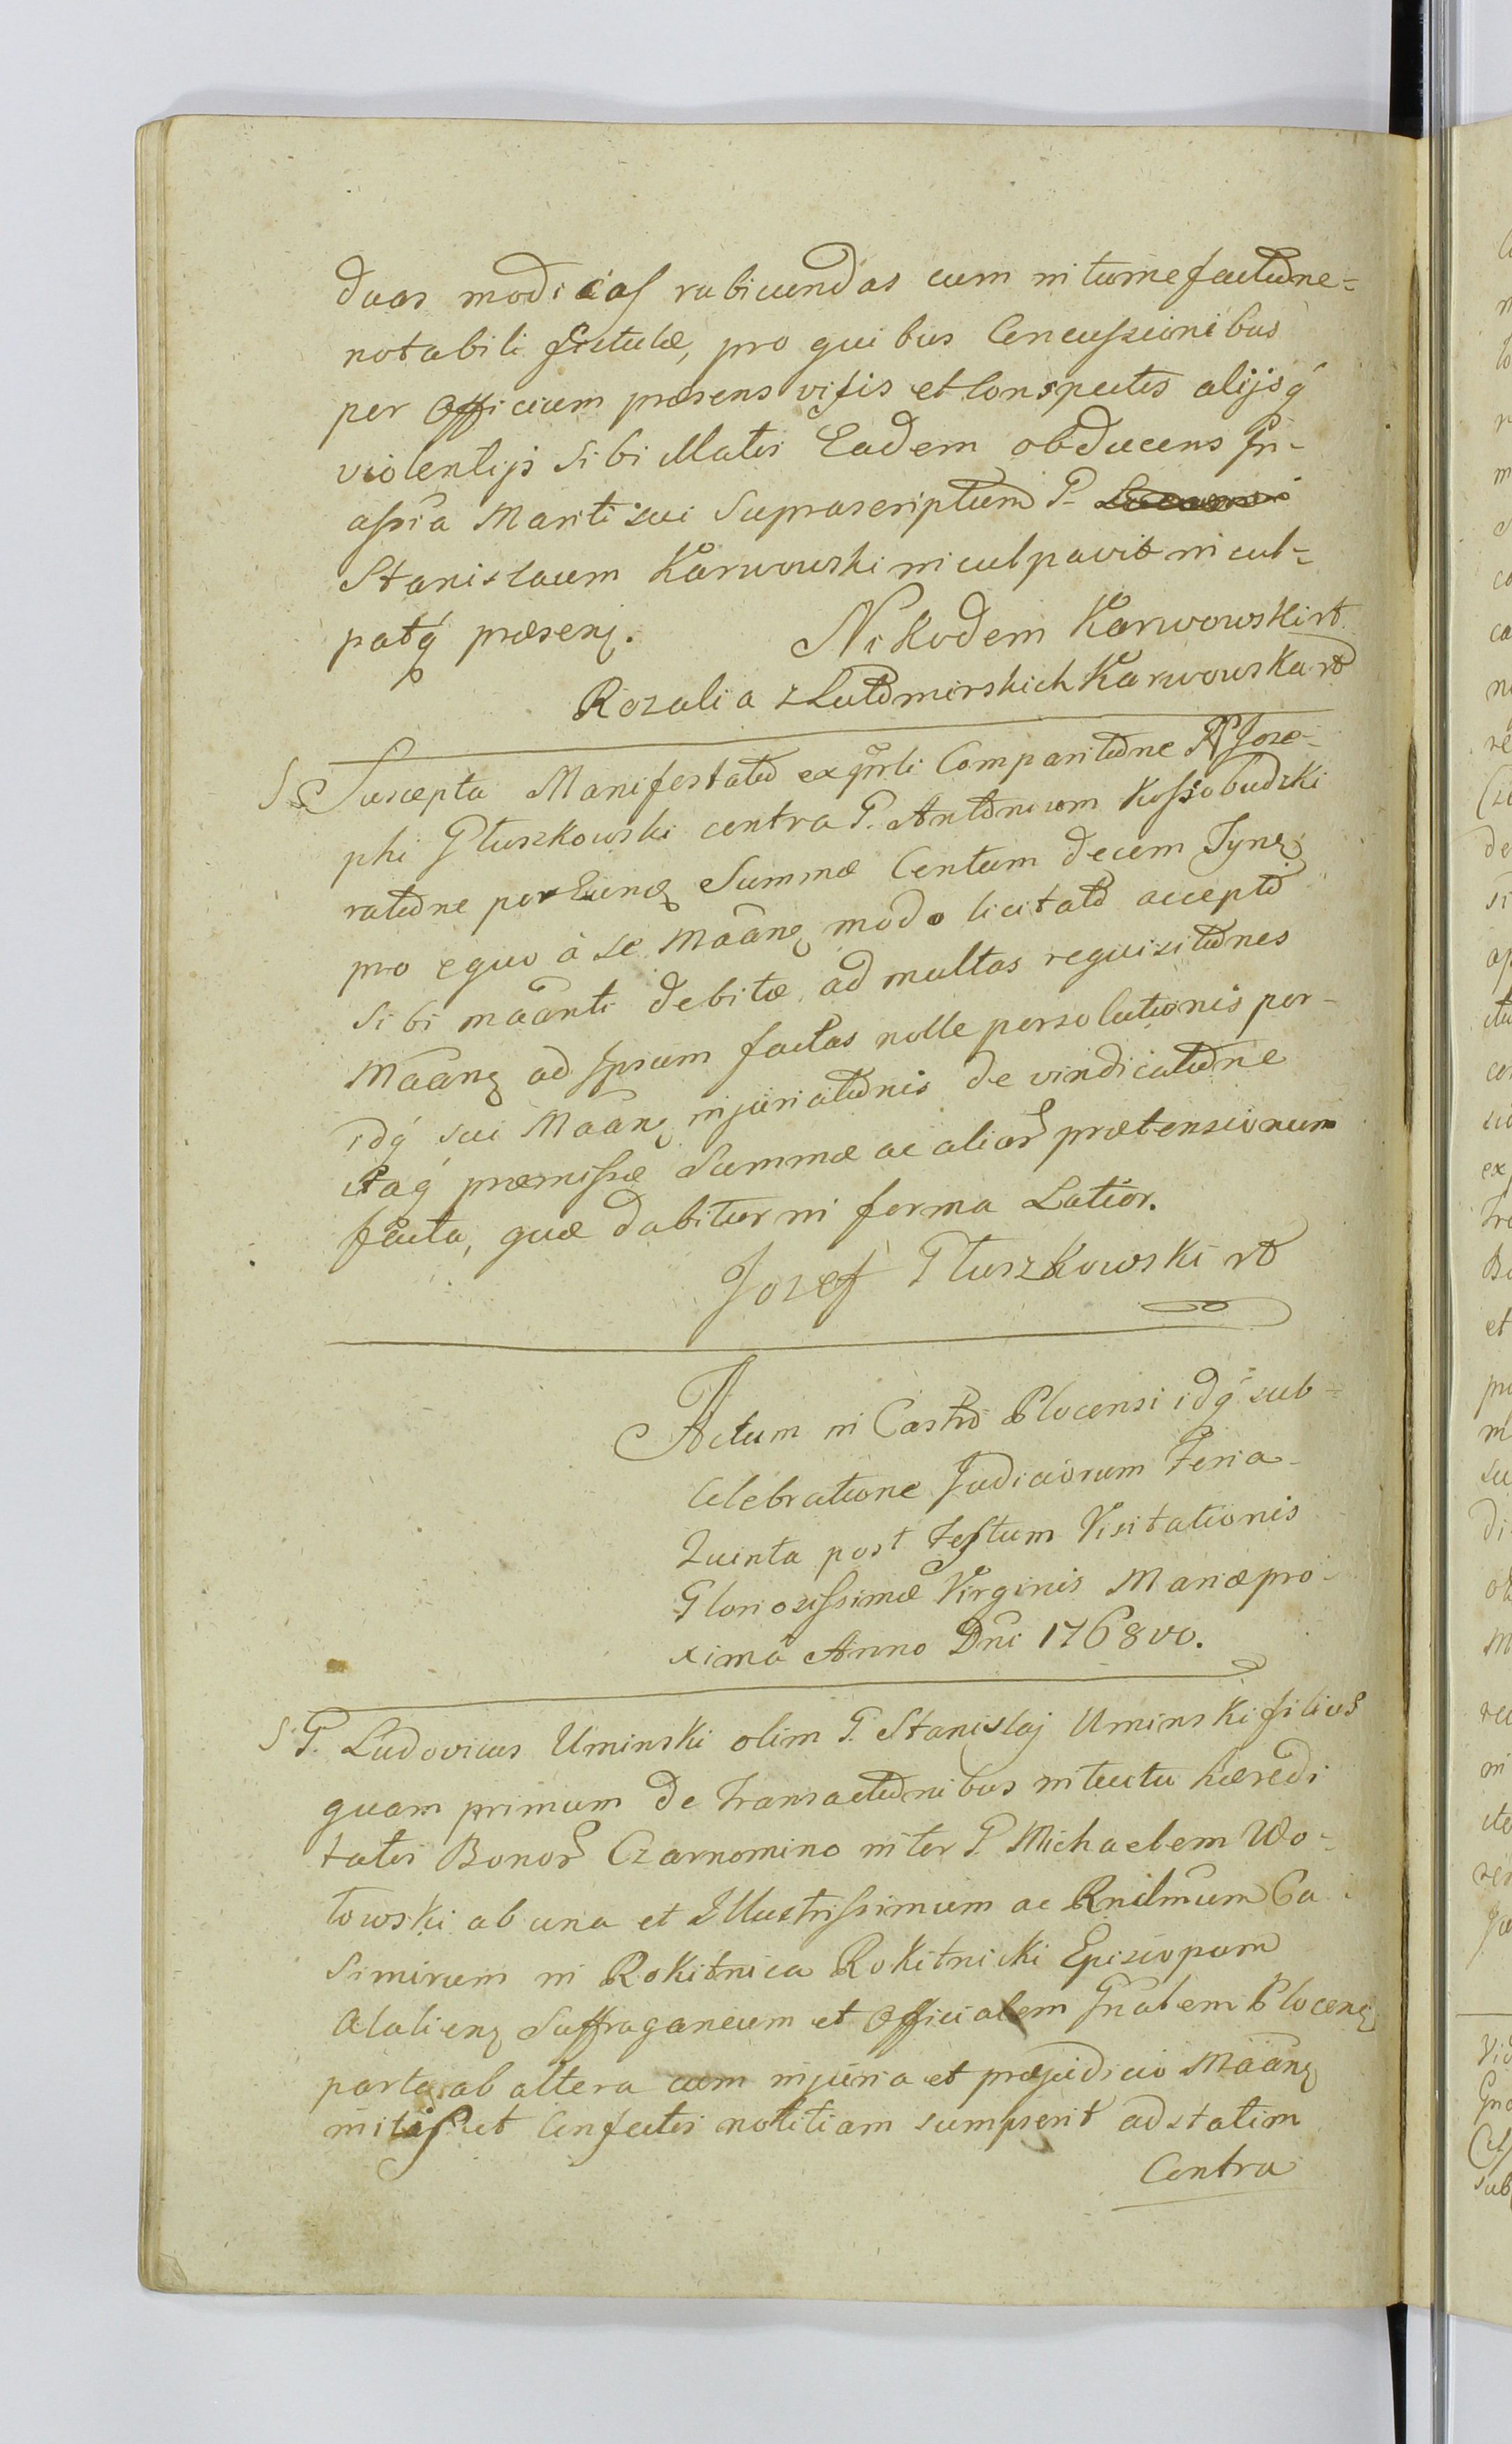 duas modicas rubicundas cum intumefactōne
notabili fistulæ, pro quibus Concussionibus
per Officium præsens visis et Conspectis alijsq́
violentijs sibi illatis Eadem obducens In-
assia Mariti sui Suprascriptum P.
Stanislaum Karwowski inculpavit incul-
patq́ præsenȝ. Nikodem Karwowski rō
Rozalia z Lutomirskich Karwowska rō
S. Suscepta Manifestatio ex Comparitōne P. Jose-
phi Głuszkowski contra P. Antonium Kossobudzki
ratōne per Eunȝ Summæ Centum decem Tynȝ
pro equo à se Mãanȝ modo licitatō acceptō
sibi mãanti debitæ ad multas requisitōnes
Mãanȝ ad Ipsum factas nolle persolutionis per-
idq́ sui Mãanȝ injuriatōnis de vindicatōne
itaq́ præmissæ Summæ ac alior̃ prætensionum
facta, quæ dabitur in forma Latior.
Jozef Głuszkowski rō
Actum in Castro Plocensi idq́ sub
Celebratione Judiciorum Feria
Quinta post Festum Visitationis
Gloriosissimæ Virginis Mariæ pro-
xima Anno Dni 1768vo.
S. G. Ludovicus Uminski olim G. Stanislaj Uminski filius
quam primum de Transactōnibus intuitu hæredi
tatis Bonor̃ Czarnomino inter G. Michaelem Wo-
łowski ab una et Illustrissimum ac Rndmum Ca
simirum in Rokitnica Rokitnicki Episcopum
Alalienȝ Suffraganeum et Officialem Gnalem Plocenȝ
parte ab altera cum injuria et præjudicio Mãanȝ
initis et Confectis notitiam sumpserit adstatim
Contra